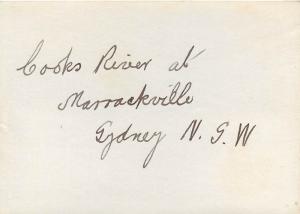 Cooks River at
Marrackville
Sydney N. S. W